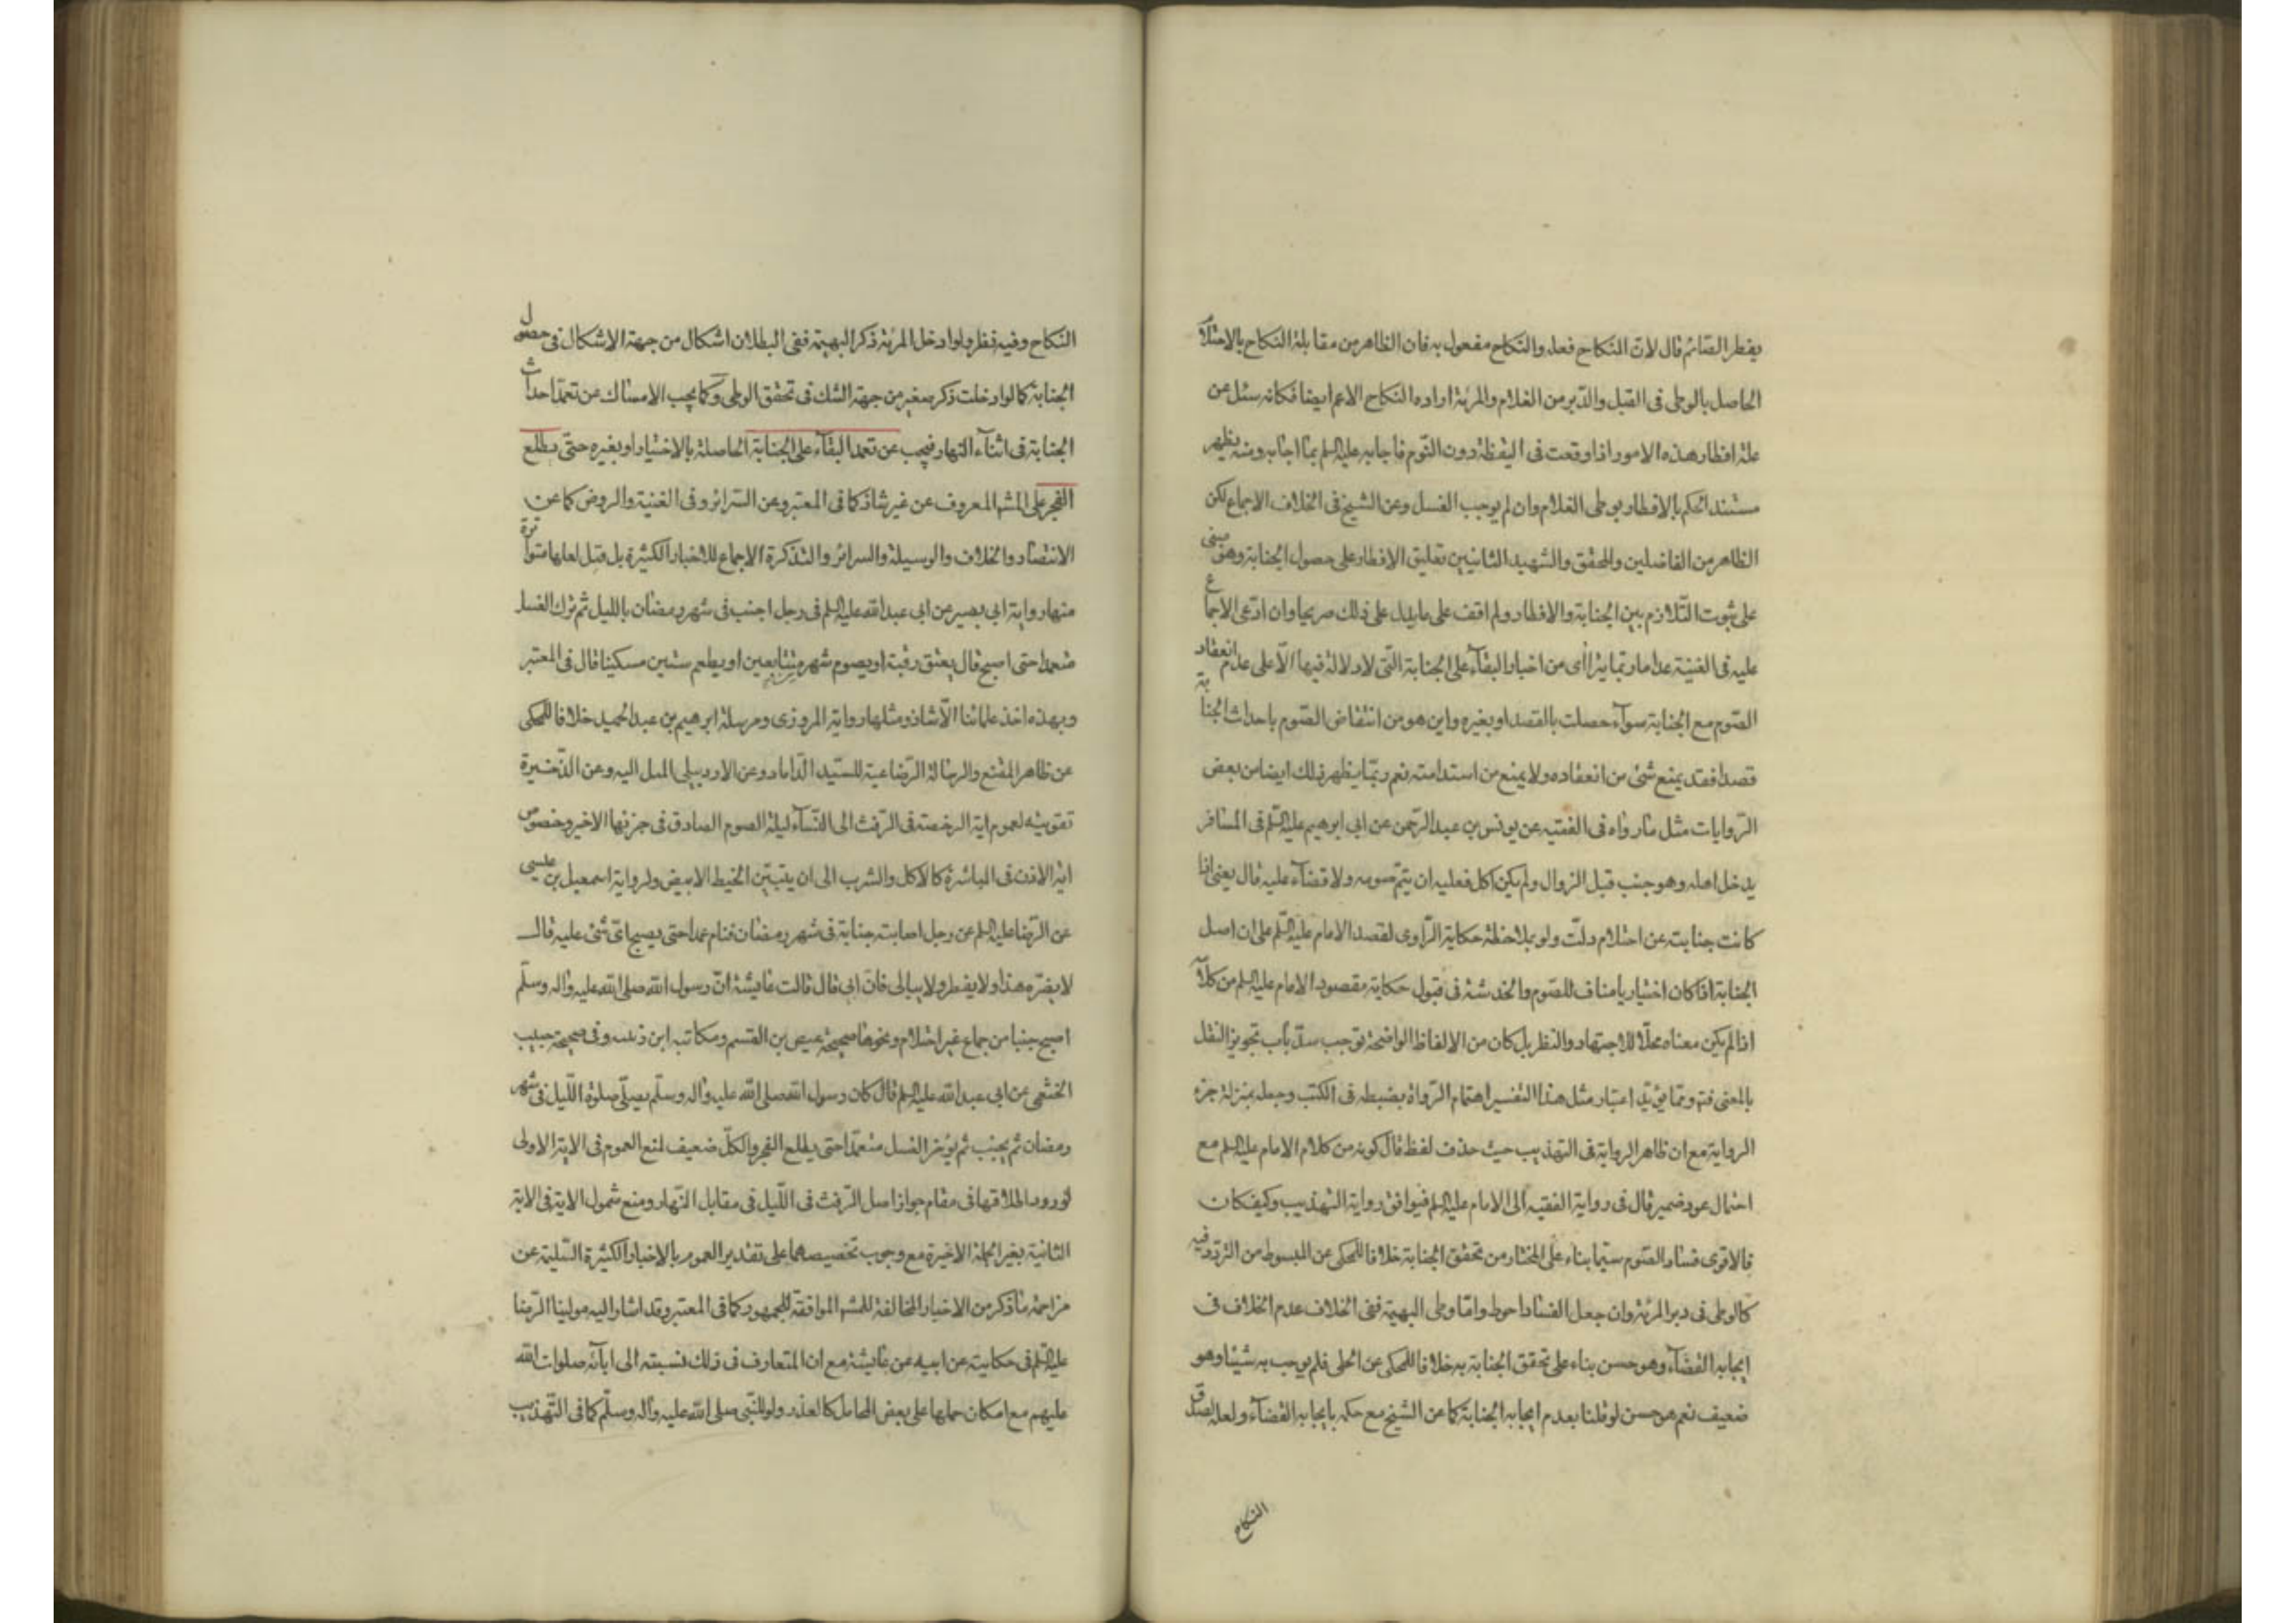 يفطر الصّائم قال لانّ النكاح فعله والنكاح مفعول به فان الظاهر من مقابلة النكاح بالاحتلام
الحاصل بالوطى فى القبل والدّبر من الغلام والمرئة ارادة النكاح الاعم ايضا فكانه سئل عن
علة افطار هذه الامور اذا وقعت فى اليقظة دون النّوم فاجابه عليه السلم بما اجابه ومنه يظهر
مستند الحكم بالافطار بوطى الغلام وان لم يوجب الغسل وعن الشيخ فى الخلاف الاجماع لكن
الظاهر من الفاضلين والمحقق والشهيد الثانيين تعليق الافطار على حصول الجنابة وهو مبنى
على ثبوت التّلازم بين الجنابة والافطار ولم اقف على ما يدل على ذلك صريحا وان ادّعى الاجماع
عليه فى الغنية عدا ما ربّما يترا اى من اخبار البقآء على الجنابة التى لا دلالة فيها الّا على عدم انعقاد
الصّوم مع الجنابة سوآء حصلت بالقصد او بغيره واين هو من انتقاض الصّوم باحداث الجنابة
قصدا فقد يمنع شئ من انعقاده ولا يمنع من استدامته نعم ربّما يظهر ذلك ايضا من بعض
الرّوايات مثل ما رواه فى الفقيه عن يونس بن عبد الرّحمن عن ابى ابرهيم عليه السّلم فى المسافر
يدخل اهله وهو جنب قبل الزوال ولم يكن اكل فعليه ان يتمّ صومه ولا قضآء عليه قال يعنى اذا
كانت جنابته عن احتلام دلّت ولو بملاحظة حكاية الرّاوى لقصد الامام عليه السّلم على ان اصل
الجنابة اذا كان اختياريا مناف للصّوم والخدشة فى قبول حكاية مقصود الامام عليه السلم من كلامه
اذا لم يكن معناه محلّا للاجتهاد والنظر بل كان من الالفاظ الواضحة توجب سدّ باب تجويز النقل
بالمعنى فتم وممّا يؤيّد اعتبار مثل هذا التفسير اهتمام الرّواة بضبطه فى الكتب وجعله بمنزلة جزء
الرواية مع ان ظاهر الرواية فى التهذيب حيث حذف لفظ قال كونه من كلام الامام عليه السلم مع
احتمال عود ضمير قال فى رواية الفقيه الى الامام عليه السلم فيوافق رواية التهذيب وكيف كان
فالاقوى فساد الصّوم سيّما بناء على المختار من تحقق الجنابة خلافا للمحكى عن المبسوط من التردّد فيه
كالوطى فى دبر المرئة وان جعل الفساد احوط وامّا وطى البهيمة ففى الخلاف عدم الخلاف فى
ايجابه القضآء وهو حسن بناء على تحقق الجنابة به خلافا للمحكى عن الحلى فلم يوجب به شيئا وهو
ضعيف نعم هو حسن لو قلنا بعدم ايجابه الجنابة كما عن الشيخ مع حكمه بايجابه القضآء ولعله لصدق
النكاح
النكاح وفيه نظر ولو ادخل المرئة ذكر البهيمة ففى البطلان اشكال من جهة الاشكال فى حصول
الجنابة كما لو ادخلت ذكر صغير من جهة الشك فى تحقق الوطى وكما يجب الامساك عن تعمّد احداث
الجنابة فى اثنآء النهار فيجب عن تعمد البقآء على الجنابة الحاصلة بالاختيار او بغيره حتّى يطلع
الفجر على المشهـ المعروف عن غير شاذ كما فى المعتبر وعن السّرائر وفى الغنية والروض كما عن
الانتصار والخلاف والوسيلة والسرائر والتذكرة الاجماع للاخبار الكثيرة بل قيل لعلها متواترة
منها رواية ابى بصير عن ابى عبد الله عليه السلم فى رجل اجنب فى شهر رمضان بالليل ثم ترك الغسل
متعمدا حتى اصبح قال يعتق رقبة او يصوم شهرين متتابعين او يطعم ستين مسكينا قال فى المعتبر
وبهذه اخذ علمائنا الّا شاذ ومثلها رواية المروزى ومرسلة ابرهيم بن عبد الحميد خلافا للمحكى
عن ظاهر المقنع والرسالة الرّضاعية للسّيد الدّاماد وعن الاردبيلى الميل اليه وعن الذّخيرة
تقويته لعموم اية الرخصة فى الرّفث الى النّسآء ليلة الصوم الصادق فى جزئها الاخير وخصوص
اية الاذن فى المباشرة كالاكل والشرب الى ان يتبيّن الخيط الابيض ولرواية اسمعيل بن عيسى
عن الرّضا عليه السلم عن رجل اصابته جنابة فى شهر رمضان فنام عمدا حتى يصبح اىّ شئ عليه قال
لا يضرّه هذا ولا يفطر ولا يبالى فان ابى قال قالت عايشة انّ رسول الله صلى الله عليه واله وسلّم
اصبح جنبا من جماع غير احتلام ونحوها صحيحة عيص بن القسم ومكاتبة ابن زينب وفى صحيحة حبيب
الخثعمى عن ابى عبد الله عليه السلم قال كان رسول الله صلى الله عليه واله وسلّم يصلّى صلوة اللّيل فى شهر
رمضان ثم يجنب ثم يؤخر الغسل متعمّدا حتى يطلع الفجر والكلّ ضعيف لمنع العموم فى الاية الاولى
لورود اطلاقها فى مقام جواز اصل الرّفث فى اللّيل فى مقابل النّهار ومنع شمول الاية فى الاية
الثانية بغير الجملة الاخيرة مع وجوب تخصيصهما على تقدير العموم بالاخبار الكثيرة السّليمة عن
مزاحمة ما ذكر من الاخبار المخالفة للمشهـ الموافقة للجمهور كما فى المعتبر وقد اشار اليه مولينا الرّضا
عليه السّلم فى حكايته عن ابيه عن عايشة مع ان المتعارف فى ذلك نسبته الى ابآئه صلوات الله
عليهم مع امكان حملها على بعض المحامل كالعذر ولو للنّبى صلى الله عليه واله وسلّم كما فى التّهذيب